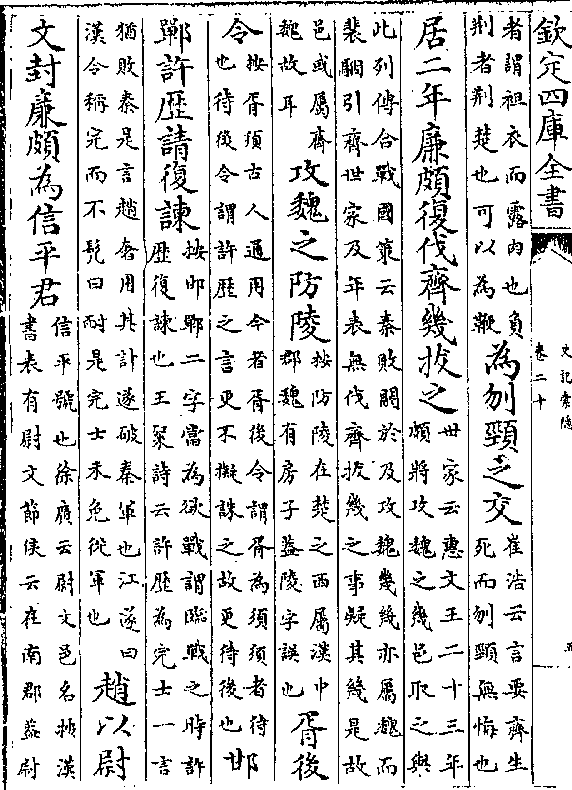 欽定四庫全書
史記索隱
卷二十
五
者謂祖衣而露肉也負
荆者荆楚也可以為鞭
為刎頸之交
崔浩云言要齊生
死而刎頸無悔也
居二年廉頗復伐齊幾拔之
世家云惠文王二十三年
頗將攻魏之幾邑取之與
此列傳合戰國策云秦敗閼於及攻魏幾幾亦屬魏而
裴駰引齊世家及年表無伐齊拔幾之事疑其幾是故
邑或屬齊
魏故耳
攻魏之防陵
按防陵在楚之西屬漢中
郡魏有房子葢陵字誤也
胥後
令
按胥須古人通用今者胥後令謂胥為須須者待
也待後令謂許歴之言更不擬誅之故更待後也
邯
鄲許歴請復諫
按邯鄲二字當為欲戰謂臨戰之時許
歴復諫也王粲詩云許歴為完士一言
猶敗秦是言趙奢用其計遂破秦軍也江遂曰
漢令稱完而不髠曰耐是完士未免從軍也
趙以尉
文封廉頗為信平君
信平號也徐廣云尉文邑名按漢
書表有尉文節侯云在南郡葢尉